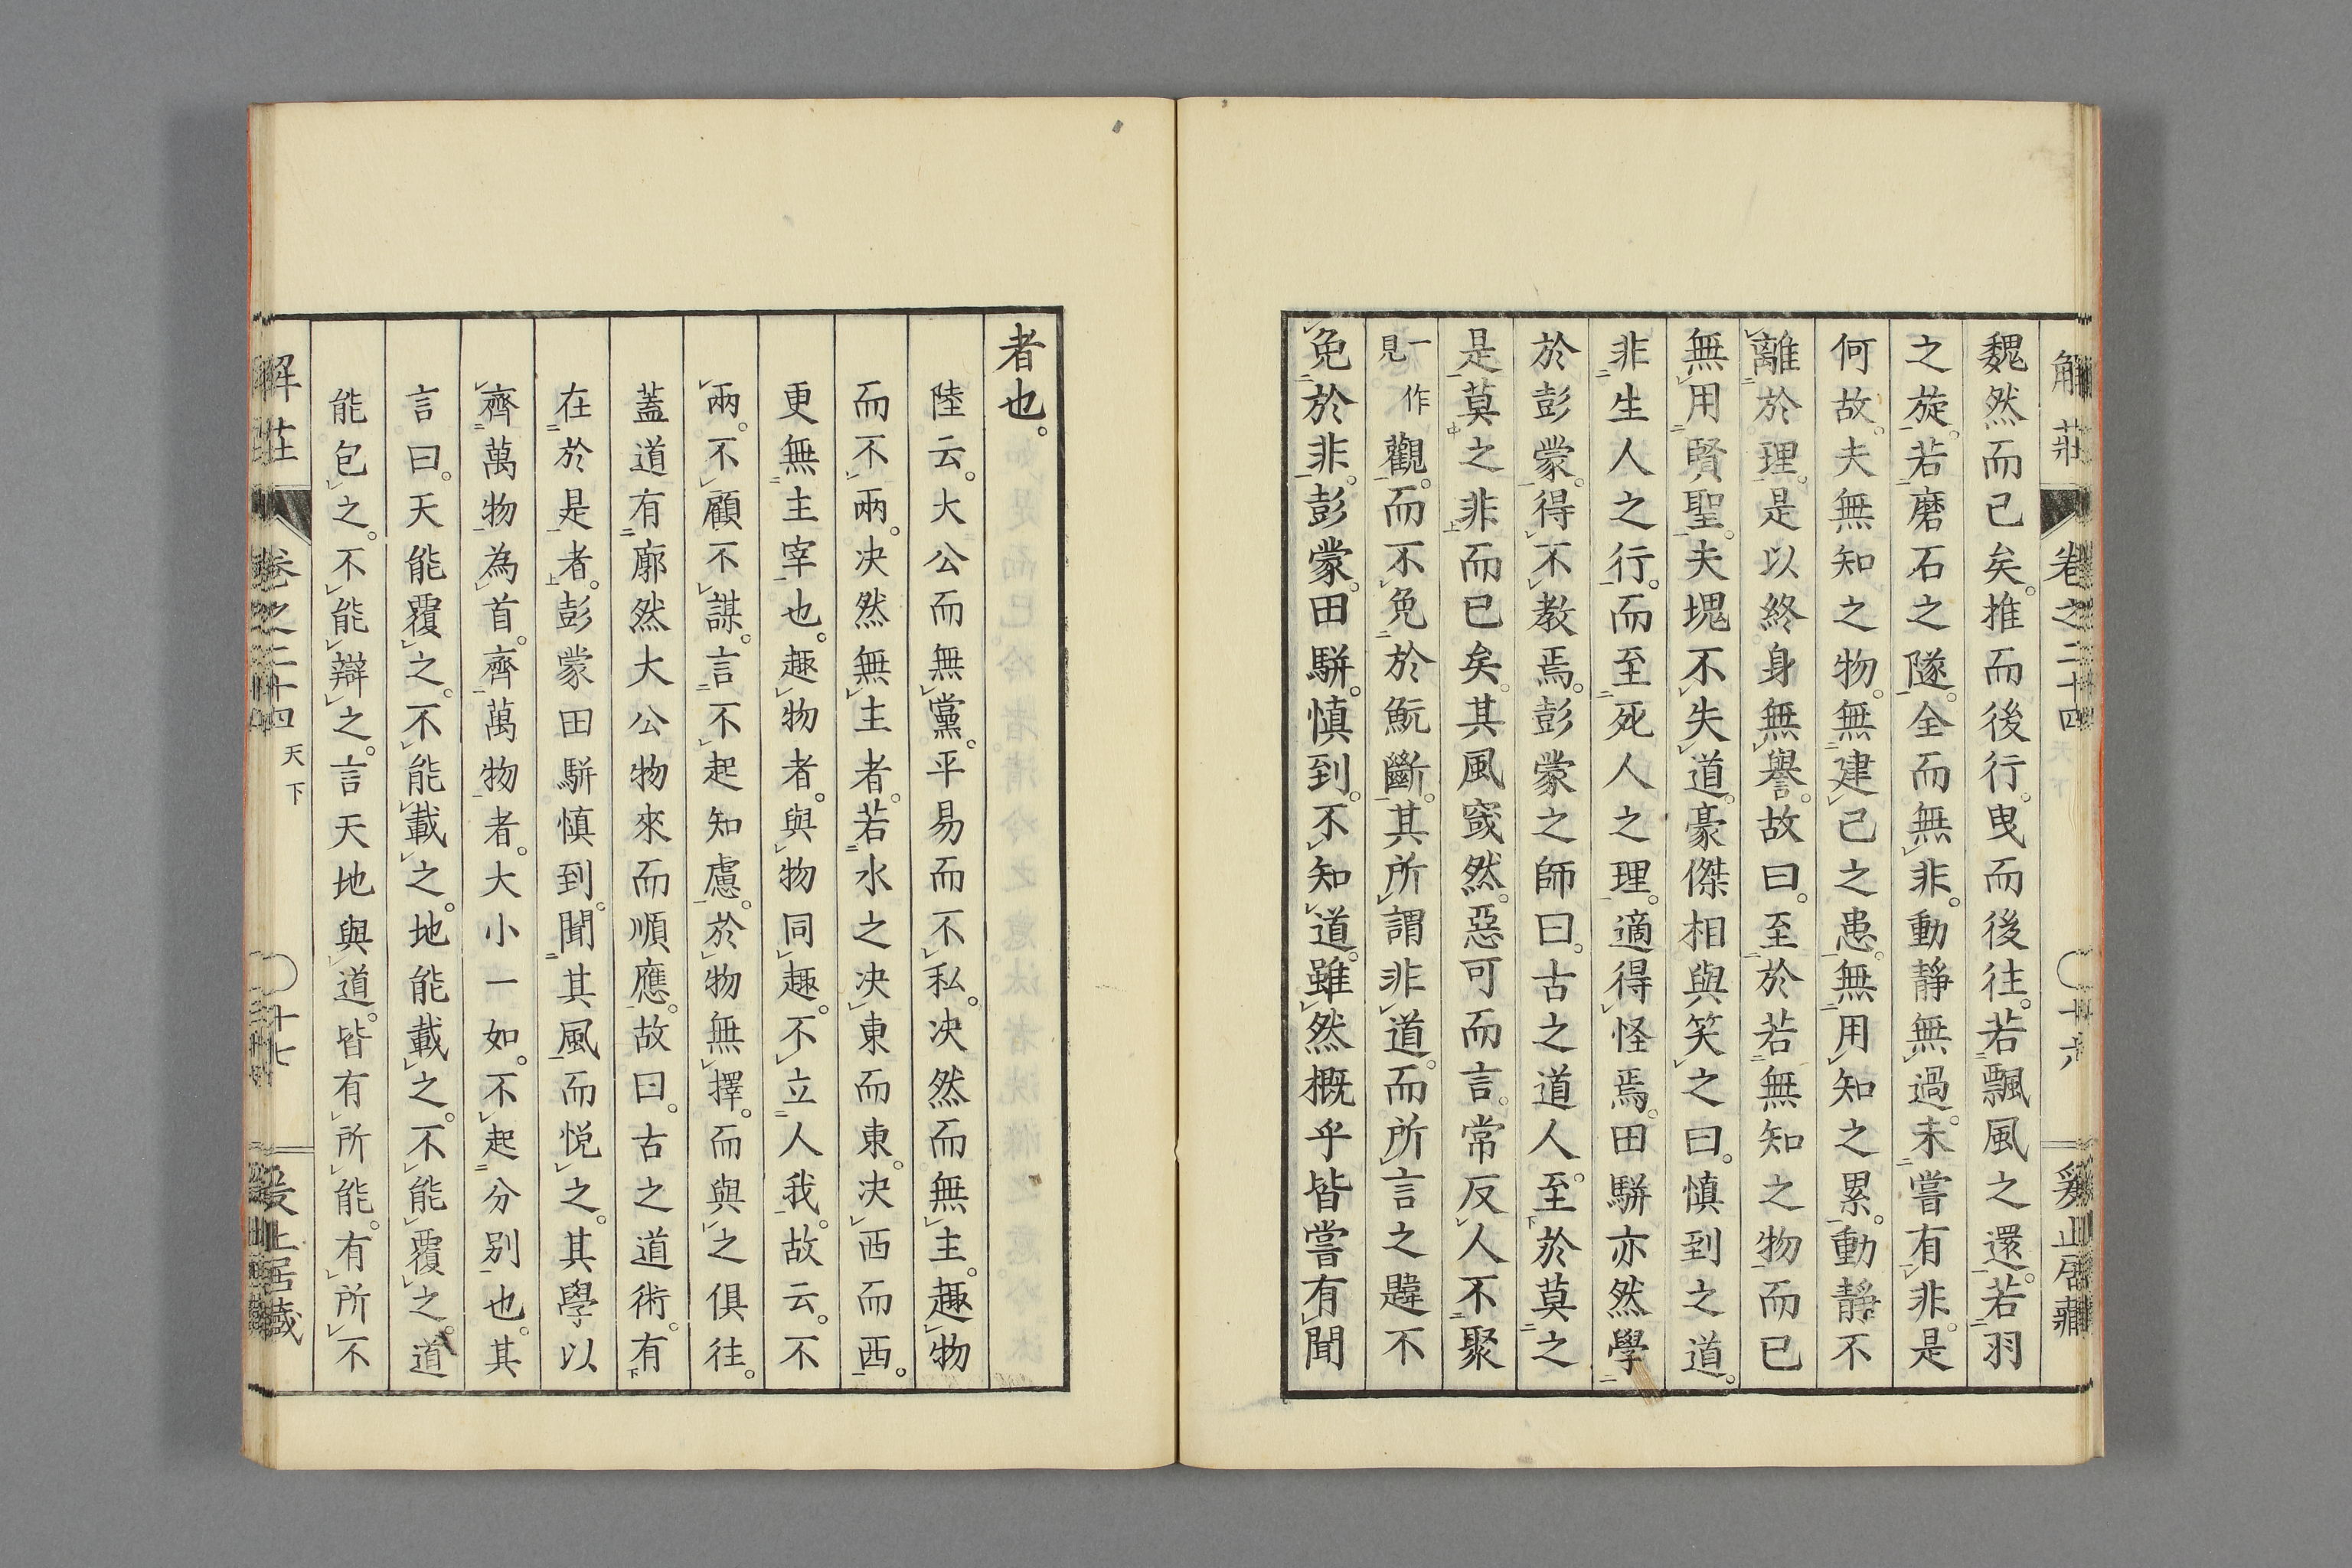 解莊 卷之二十四 天下 〇十六
魏然而已矣。推而後行。曳而後往。若飄風之還。若羽
之旋。若磨石之隧。全而無非。動靜無過。未嘗有非。是
何故。夫無知之物。無建己之患。無用知之累。動靜不
離於理。是以終身無譽。故曰。至於若無知之物而已
無用賢聖。夫塊不失道。豪傑相與笑之曰。慎到之道。
非生人之行。而至死人之理。適得怪焉。田駢亦然學
於彭蒙。得不教焉。彭蒙之師曰。古之道人。至於莫之
是莫之非而已矣。其風窢然。惡可而言。常反人不聚
一作見觀。而不免於魭斷。其所謂非道。而所言之韙不
免於非。彭蒙。田駢。慎到。不知道。雖然概乎皆嘗有聞
者也。
陸云。大公而無黨。平易而不私。决然而無主。趣物
而不兩。决然無主者。若水之决東而東。决西而西。
更無主宰也。趣物者。與物同趣。不立人我。故云。不
兩。不顧不謀。言不起知慮。於物無擇。而與之俱往。
蓋道有廓然大公物來而順應。故曰。古之道術。有
在於是者。彭蒙田駢慎到。聞其風而悦之。其學以
齊萬物為首。齊萬物者。大小一如。不起分別也。其
言曰。天能覆之。不能載之。地能載之。不能覆之。道
能包之。不能辯之。言天地與道。皆有所能。有所不
解莊 卷之二十四 天下 〇十七